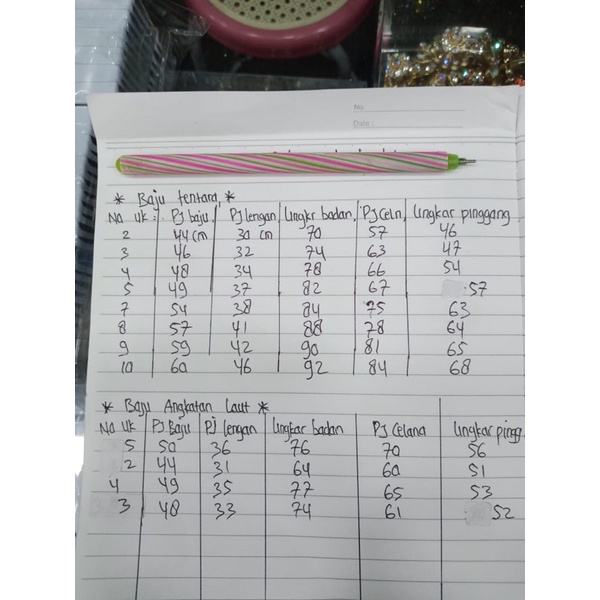 No
Date :
* Baju tentara *
No uk : PJ baju, PJ lengan, lingkr badan, PJ celn, lingkar pinggang
2 44 cm 30 cm 70 57 46
3 46 32 74 63 47
4 48 34 78 66 54
5 49 37 82 67 57
7 54 38 84 75 63
8 57 41 88 78 64
9 59 42 90 81 65
10 60 46 92 84 68
* Baju Angkatan Laut *
No uk PJ Baju PJ lengan lingkar badan PJ Celana lingkar pingg
5 50 36 76 70 56
2 44 31 64 60 51
4 49 35 77 65 53
3 48 33 74 61 52